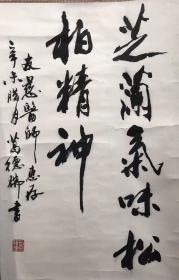 芝蘭氣味松
柏精神
友慈醫師惠存
辛未臘月 萬德瑞書